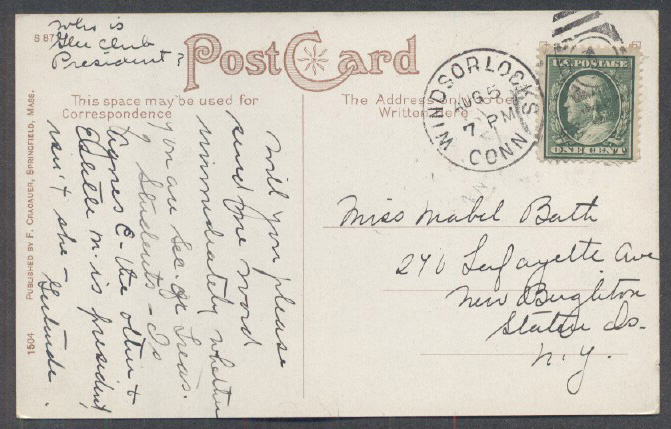 Who is
Glee Club
President?
S 87
Post Card
This space may be used for
Correspondence
The Address only to be
Written here
WINDSOR LOCKS
AUG 5
7 PM
CONN
U.S. POSTAGE
ONE CENT
will you please
send me word
immediately whether
you are Sec. or Treas.
of Students - Is
Agnes C- the other &
Estelle M. is president,
isn't she - Gertrude.
Miss Mabel Bath
246 Lafayette Ave
New Brighton
Staten Is.
N.Y.
PUBLISHED BY F. CRACAUER, SPRINGFIELD, MASS.
1504